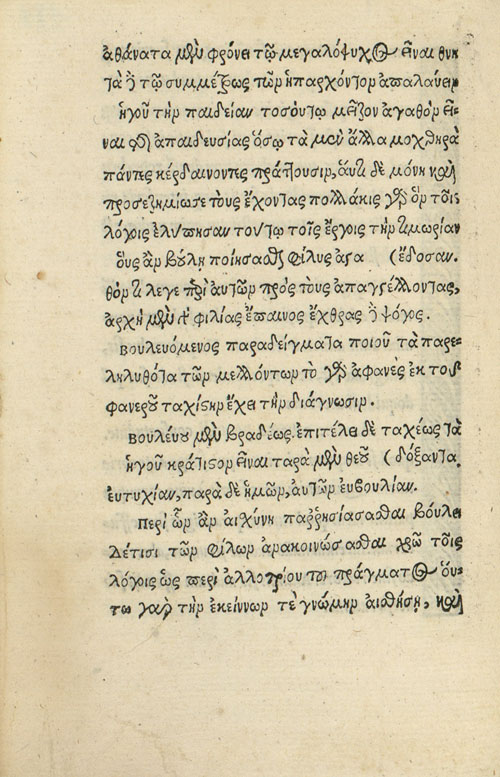 ἀθάνατα μὲν φρόνει τῷ μεγαλόψυχος εἶναι θνη
τὰ δὲ τῷ συμμέτρως τῶν ἡπαρχόντιορ ἀπαλαύειν
ἡγοῦ τὴν παιδείαν τοσούτῳ μεῖζον ἀγαθὸν εἶ-
ναι τῆς ἀπαιδευσίας ὅσῳ τὰ μὲν ἄλλα μοχθηρὰ
πάντες κέρδαινοντες πράττουσιν, ἅυτη δὲ μόνη καὶ
προσεζημίωσε τοὺς ἔχοντας πολλάκις γὰρ ὃν τοῖς
λόγοις ἐλύπησαν τούτῳ τοῖς ἔργοις τὴν τιμωρίαν
οὓς ἂν βούλη ποίησασθαι φίλυς ἀγα (ἔδοσαν.
θόν τι λεγε περὶ αὐτῶν πρὸς τοὺς ἀπαγγέλλοντας,
ἀρχὴ μὲν γὰρ φιλίας ἔπαινος ἔχθρας δὲ ψόγος.
βουλευόμενος παραδείγματα ποιοῦ τὰ παρε-
ληλυθότα τῶν μελλόντων τὸ γὰρ ἀφανὲς ἐκ τοῦ
φανεροῦ ταχίστην ἔχει τὴν διάγνωσιν.
βουλεύου μὲν βραδέως. ἐπιτέλει δὲ ταχέως τὰ
ἡγοῦ κράτιστον εἶναι ταρὰ μὲν θεοῦ (δόξαντα.
ευτυχίαν, παρὰ δὲ ἡμῶν, ἀυτῶν ἐυβουλίαν.
Περὶ ὧν ἂν αἰχύνη παῤῥησιάσασθαι βούλει
δέτισι τῶν φίλων ἀνακοινώσασθαι χρῶ τοῖς
λόγοις ὡς περὶ ἀλλοτρίου τοῦ πράγματος οὕ-
τω γὰρ τὴν ἐκείννων τὲ γνώμην αἰσθήσῃ, καὶ